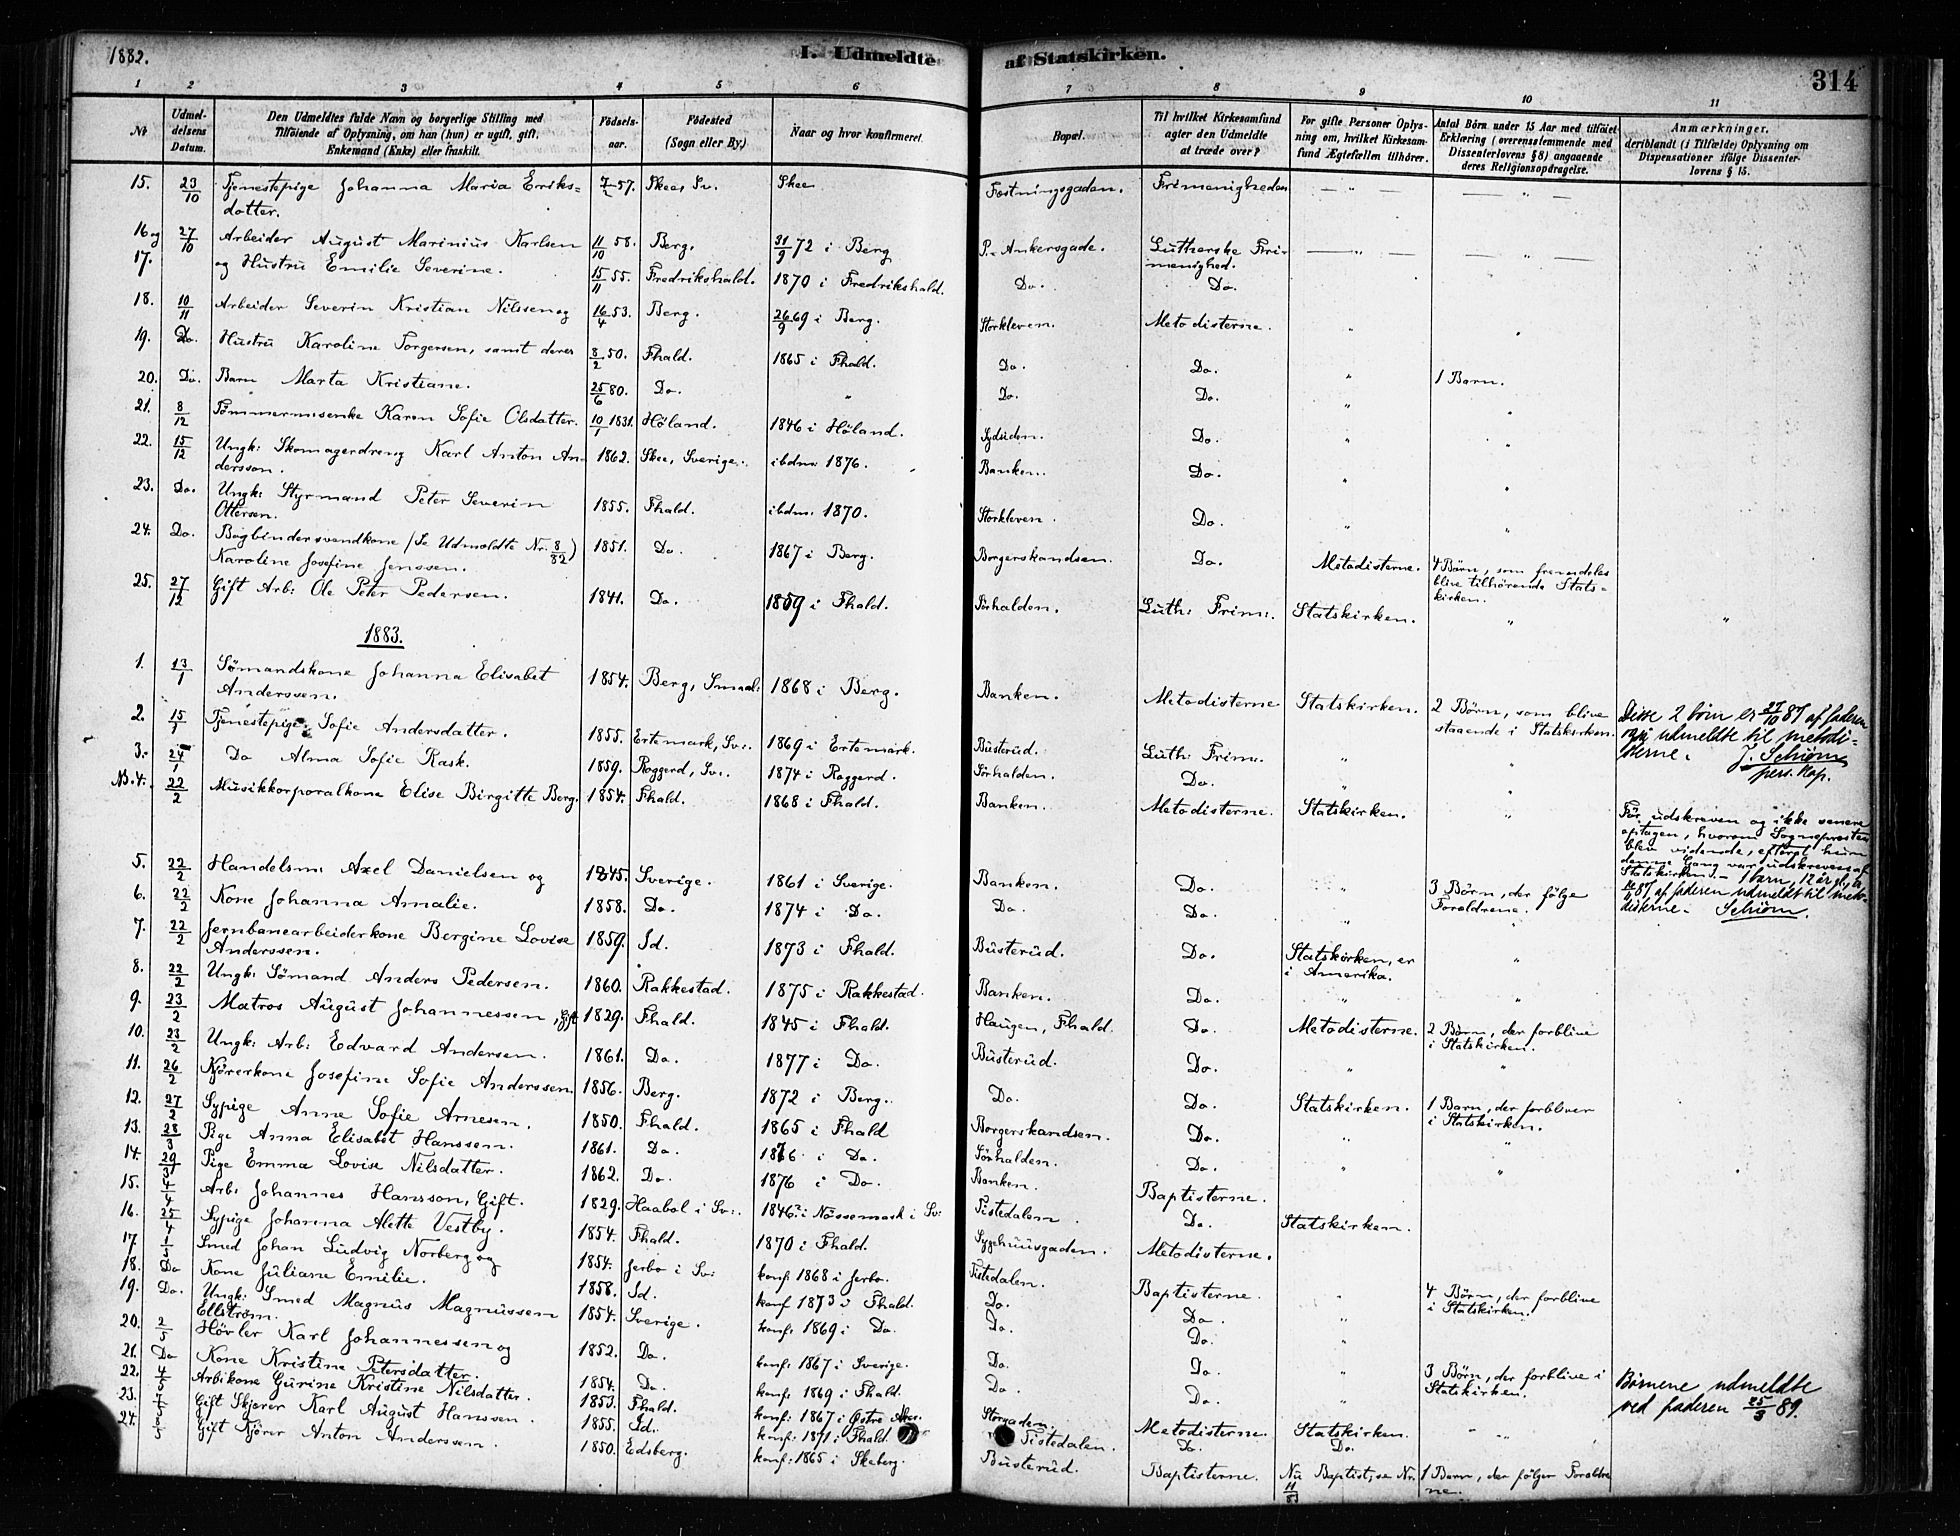 1882.
I. Udmeldte af Statskirken.
314
1 2 3 4 5 6 7 8 9 10 11
No
Udmeldelsens Datum.
Den Udmeldtes fulde Navn og borgerlige Stilling med Tilføiende af Oplysning, om han (hun) er ugift, gift, Enkemand (Enke) eller fraskilt.
Fødselsaar.
Fødested (Sogn eller By.)
Naar og hvor konfirmeret.
Bopæl.
Til hvilket Kirkesamfund agter den Udmeldte at træde over?
For gifte Personer Oplysning om, hvilket Kirkesamfund Ægtefællen tilhører.
Antal Børn under 15 Aar med tilføiet Erklæring (overensstemmende med Dissenterlovens §8) angaaende deres Religionsopdragelse.
Anmærkninger. deriblandt (i Tilfælde) Oplysning om Dispensationer ifølge Dissenterlovens § 15.
15. 23/10 Tjenestepige Johanna Maria Eriksdatter. 7/2 57. Skee, Sv. Skee Fæstningsgaden. Frimenigheden — „ — — „ —
16 og 27/10 Arbeider August Marinius Karlsen 11/10 58. Berg. 31/9 72 i Berg P. Ankersgade. Lutherske Frimenighed. — „ — — „ —
17. og Hustru Emilie Severine. 15/11 55. Fredrikshald. 1870 i Fredrikshald. Do. Do.
18. 10/11 Arbeider Severin Kristian Nilssen og 16/4 53. Berg. 26/9 69 i Berg. Storkleven. Metodisterne. „ „
19. Do. Hustru Karoline Torgersen, samt deres 8/2 50. Fhald. 1865 i Fhald. Do. Do. „ 1 Barn.
20. Do. Barn Marta Kristiane. 25/6 80. Do. „ Do. Do. „ „
21. 8/12 Tømmermsenke Karen Sofie Olsdatter. 10/1 1831. Høland. 1846 i Høland. Sydsiden. Do. „ „
22. 15/12 Ungk: Skomagerdreng Karl Anton Andersson. 1862. Skee, Sverige. ibdm: 1876. Banken. Do. „ „
23. Do. Ungk: Styrmand Peter Severin Ottersen. 1855. Fhald. ibdm: 1870. Storkleven. Do. „ „
24. Do. Bogbindersvendkone (Se Udmeldte Nr. 8/82) Karoline Josefine Jenssen. 1851. Do. 1867 i Berg. Borgerskandsen. Do. Metodisterne. 4 Børn, som fremdeles blive tilhørende Statskirken.
25. 27/12 Gift Arb: Ole Peter Pedersen. 1841. Do. 1859 i Fhald. Sørhalden. Luth: Frim:. Statskirken. „ „
1883.
1. 13/1 Sømandskone Johanna Elisabet Anderssen. 1854. Berg, Smaal: 1868 i Berg. Banken. Metodisterne Statskirken. 2 Børn, som blive staaende i Statskirken. Disse 2 børn er 27/10 87 af faderen udmeldte til metodisterne. J. Schiørn pers. Kap.
2. 15/1 Tjenestepige Sofie Andersdatter. 1855. Ertemark, Sv:. 1869 i Ertemark. Busterud. Luth: Frim:. „ „
3. 24/1 Do Alma Sofie Rask. 1859. Roggerd, Sv:. 1874 i Roggerd. Sørhalden. Do. „ „
NB. 4. 22/2 Musikkorporalkone Elise Birgitte Berg. 1854. Fhald. 1868 i Fhald. Banken. Metodisterne. Statskirken. „ Før udskreven og ikke senere optagen, hvorom Sognepresten blev vidende, efterat hun denne Gang var udskreven af Statskirken. – 1 barn, 12 år gl., er 87 af faderen udmeldt til metodisterne. Schiørn.
5. 22/2 Handelsm: Axel Danielsen og 1845. Sverige. 1861 i Sverige. Banken. Do. „ 3 Børn, der følge Forældrene.
6. 22/2 Kone Johanna Amalie. 1858. Do. 1874 i Do. Do. Do. „ „
7. 22/2 Jernbanearbeiderkone Bergine Lovise Anderssen. 1859. Id. 1873 i Fhald. Busterud. Do. Statskirken, er i Amerika. „
8. 22/2 Ungk: Sømand Anders Pedersen. 1860. Rakkestad. 1875 i Rakkestad. Banken. Do. „ „
9. 23/2 Matros August Johannessen, Gift 1829. Fhald. 1845 i Fhald. Haugen, Fhald. Do. Metodisterne. 2 Børn, der forblive i Statskirken.
10. 23/2 Ungk: Arb: Edvard Andersen. 1861. Do. 1877 i Do. Busterud. Do. „ „
11. 26/2 Kjørerkone Josefine Sofie Anderssen. 1856. Berg. 1872 i Berg. Do. Do. Statskirken. 1 Barn, der forbliver i Statskirken.
12. 27/2 Sypige Anne Sofie Arnesen. 1850. Fhald. 1865 i Fhald Borgerskandsen. Do. „ „
13. 28/3 Pige Anna Elisabet Hanssen. 1861. Do. 1876 i Do. Sørhalden. Do. „ „
14. 29/3 Pige Emma Lovise Nilsdatter. 1862. Do. 1876 i Do. Banken. Baptisterne.
15. 4/4 Arb: Johannes Hansson, Gift. 1829. Haabol i Sv:. 1846 i Nössemark i Sv: Tistedalen. Do. Statskirken.
16. 25/4 Sypige Johanna Alette Vestby. 1854. Fhald. 1870 i Fhald. Sygehuusgaden. Metodisterne.
17. 1/5 Smed Johan Ludvig Norberg og 1854. Jerbo i Sv: konf: 1868 i Jerbo. Tistedalen. Baptisterne. „ 4 Børn, der forblive i Statskirken.
18. Do Kone Juliane Emilie. 1858. Id. konf 1873 i Fhald. Do. Do. „
19. Do. Ungk: Smed Magnus Magnussen Ellström. 1854. Sverige. konf: 1869 i Do. Do. Do. „
20. 2/5 Høvler Karl Johannessen og 1852. Do. konf: 1867 i Sverige. Do. Do. „ 3 Børn, der forblive i Statskirken. Børnene udmeldte ved faderen 25/3 89.
21. Do Kone Kristine Petersdatter. 1854. Do. konf: 1869 i Fhald. Do. Do. „
22. 4/5 Arbskone Gurine Kristine Nilsdatter. 1853. Fhald. konf: 1867 i Østre Aker. Storgaden. Metodisterne. Statskirken. „ „
23. 7/5 Gift Skjærer Karl August Hanssen. 1855. Id. konf: 1871 i Fhald Tistedalen. Do. Do.
24. Gift Kjører Anton Anderssen. 1850. Edsberg. konf: 1865 i Skeberg. Busterud. Baptisterne. Nu Baptist, se Nr. 11/83 1 Barn, der følger Forældrene.